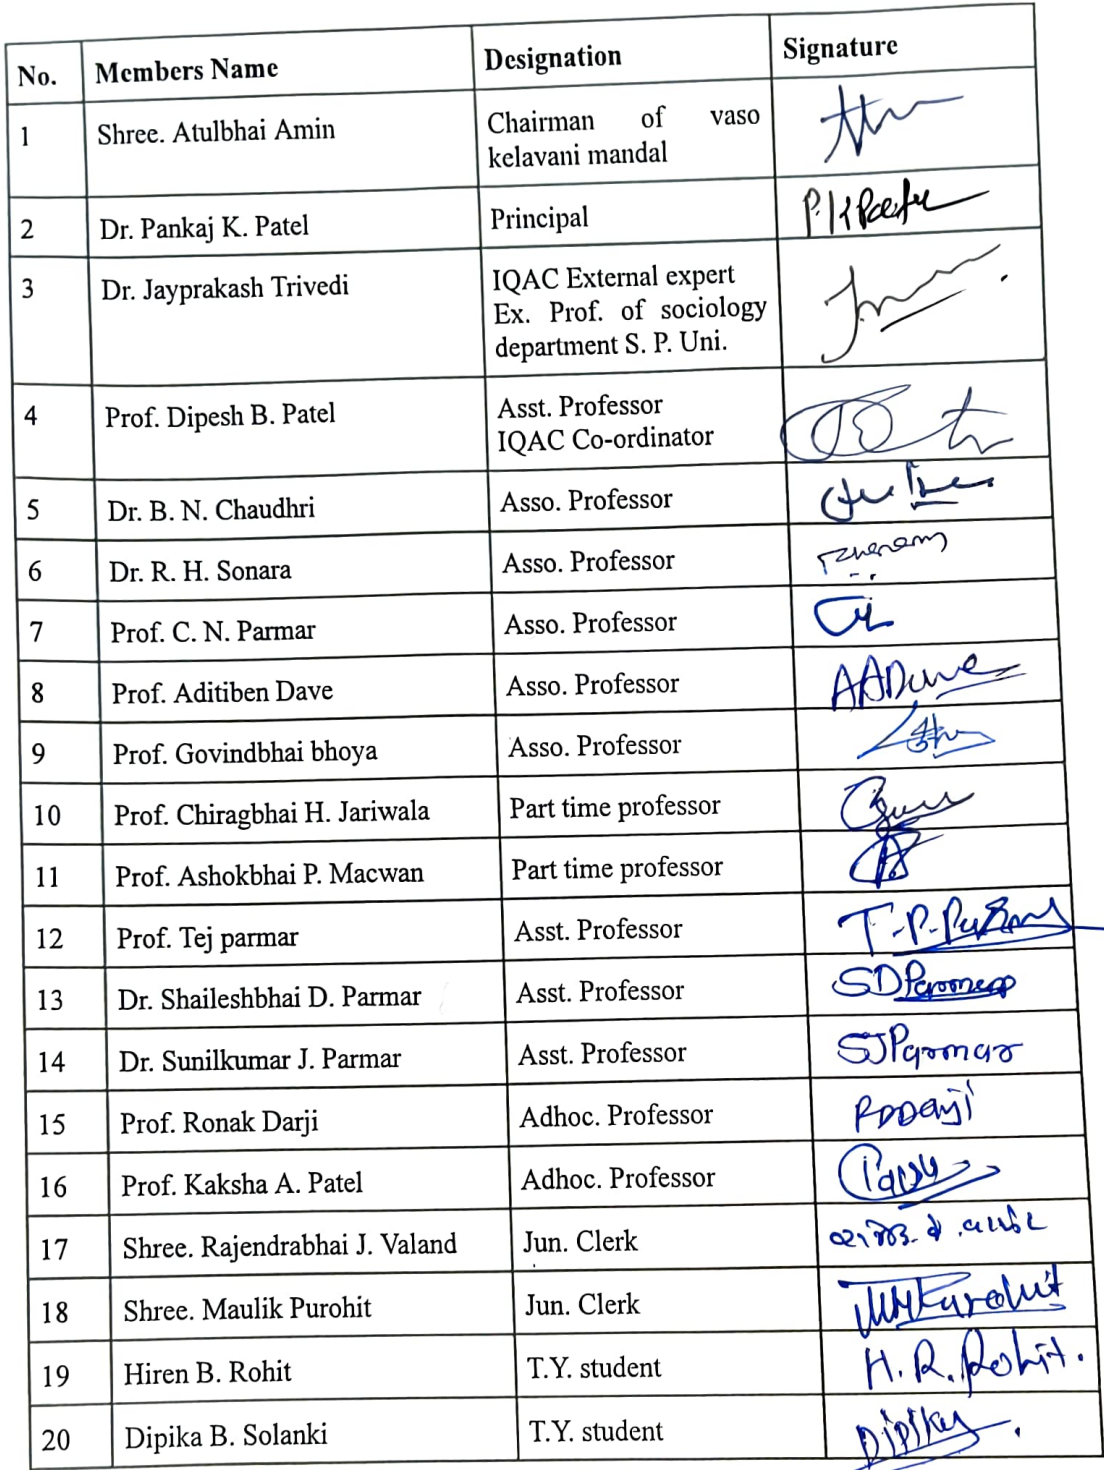 No. Members Name Designation Signature
1 Shree. Atulbhai Amin Chairman of vaso
kelavani mandal
2 Dr. Pankaj K. Patel Principal P.K Patel
3 Dr. Jayprakash Trivedi IQAC External expert
Ex. Prof. of sociology
department S. P. Uni.
4 Prof. Dipesh B. Patel Asst. Professor
IQAC Co-ordinator
5 Dr. B. N. Chaudhri Asso. Professor
6 Dr. R. H. Sonara Asso. Professor
7 Prof. C. N. Parmar Asso. Professor
8 Prof. Aditiben Dave Asso. Professor AADave
9 Prof. Govindbhai bhoya Asso. Professor
10 Prof. Chiragbhai H. Jariwala Part time professor
11 Prof. Ashokbhai P. Macwan Part time professor
12 Prof. Tej parmar Asst. Professor T.P.Parmar
13 Dr. Shaileshbhai D. Parmar Asst. Professor SDParmar
14 Dr. Sunilkumar J. Parmar Asst. Professor SJParmar
15 Prof. Ronak Darji Adhoc. Professor
16 Prof. Kaksha A. Patel Adhoc. Professor
17 Shree. Rajendrabhai J. Valand Jun. Clerk
18 Shree. Maulik Purohit Jun. Clerk
19 Hiren B. Rohit T.Y. student H.R.Rohit.
20 Dipika B. Solanki T.Y. student Dipika